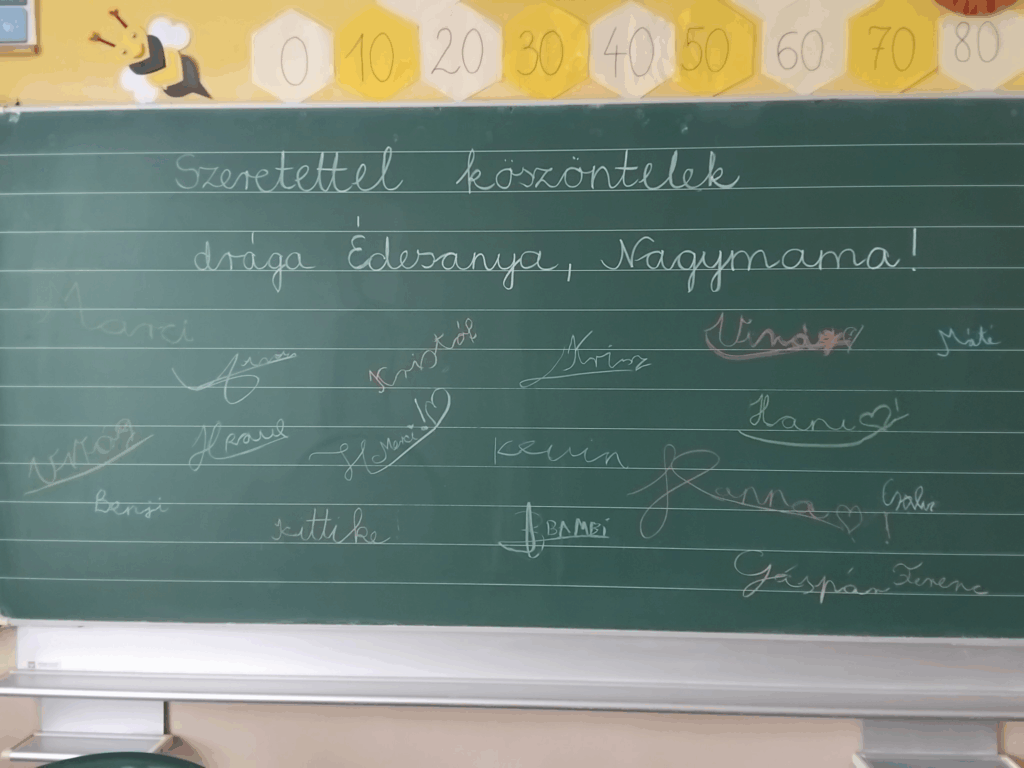 0 10 20 30 40 50 60 70 80
Szeretettel köszöntelek
drága Édesanya, Nagymama!
Marci
Kristóf Krisz Máté
Hani!
Kevin
Hanna
Benji
Kittike BAMBI
Gáspár Ferenc